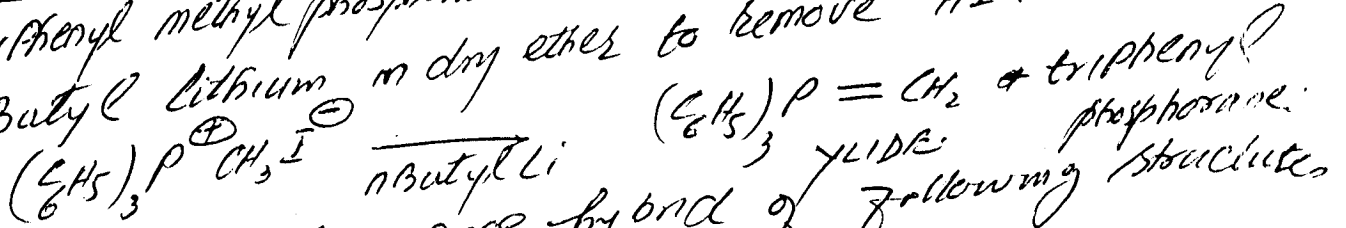 phenyl methyl
Butyl lithium in dry ether to remove
(C6H5)3 P⊕ CH3 I⊖ nButyl Li (C6H5)3 P = CH2 & triphenyl
YLIDE phosphorane.
hybrid of following structures